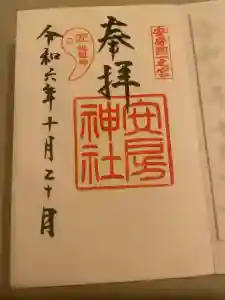 安房國一之宮
奉拝
安房
神社
令和六年十月二十日